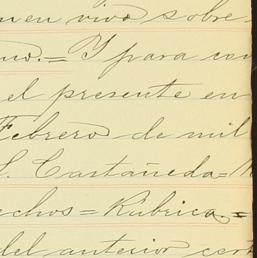 en vivo sobre
no.= Y para con
el presente en
Febrero de mil
S. Castañeda=
chos=Rúbrica.=
del anterior cert